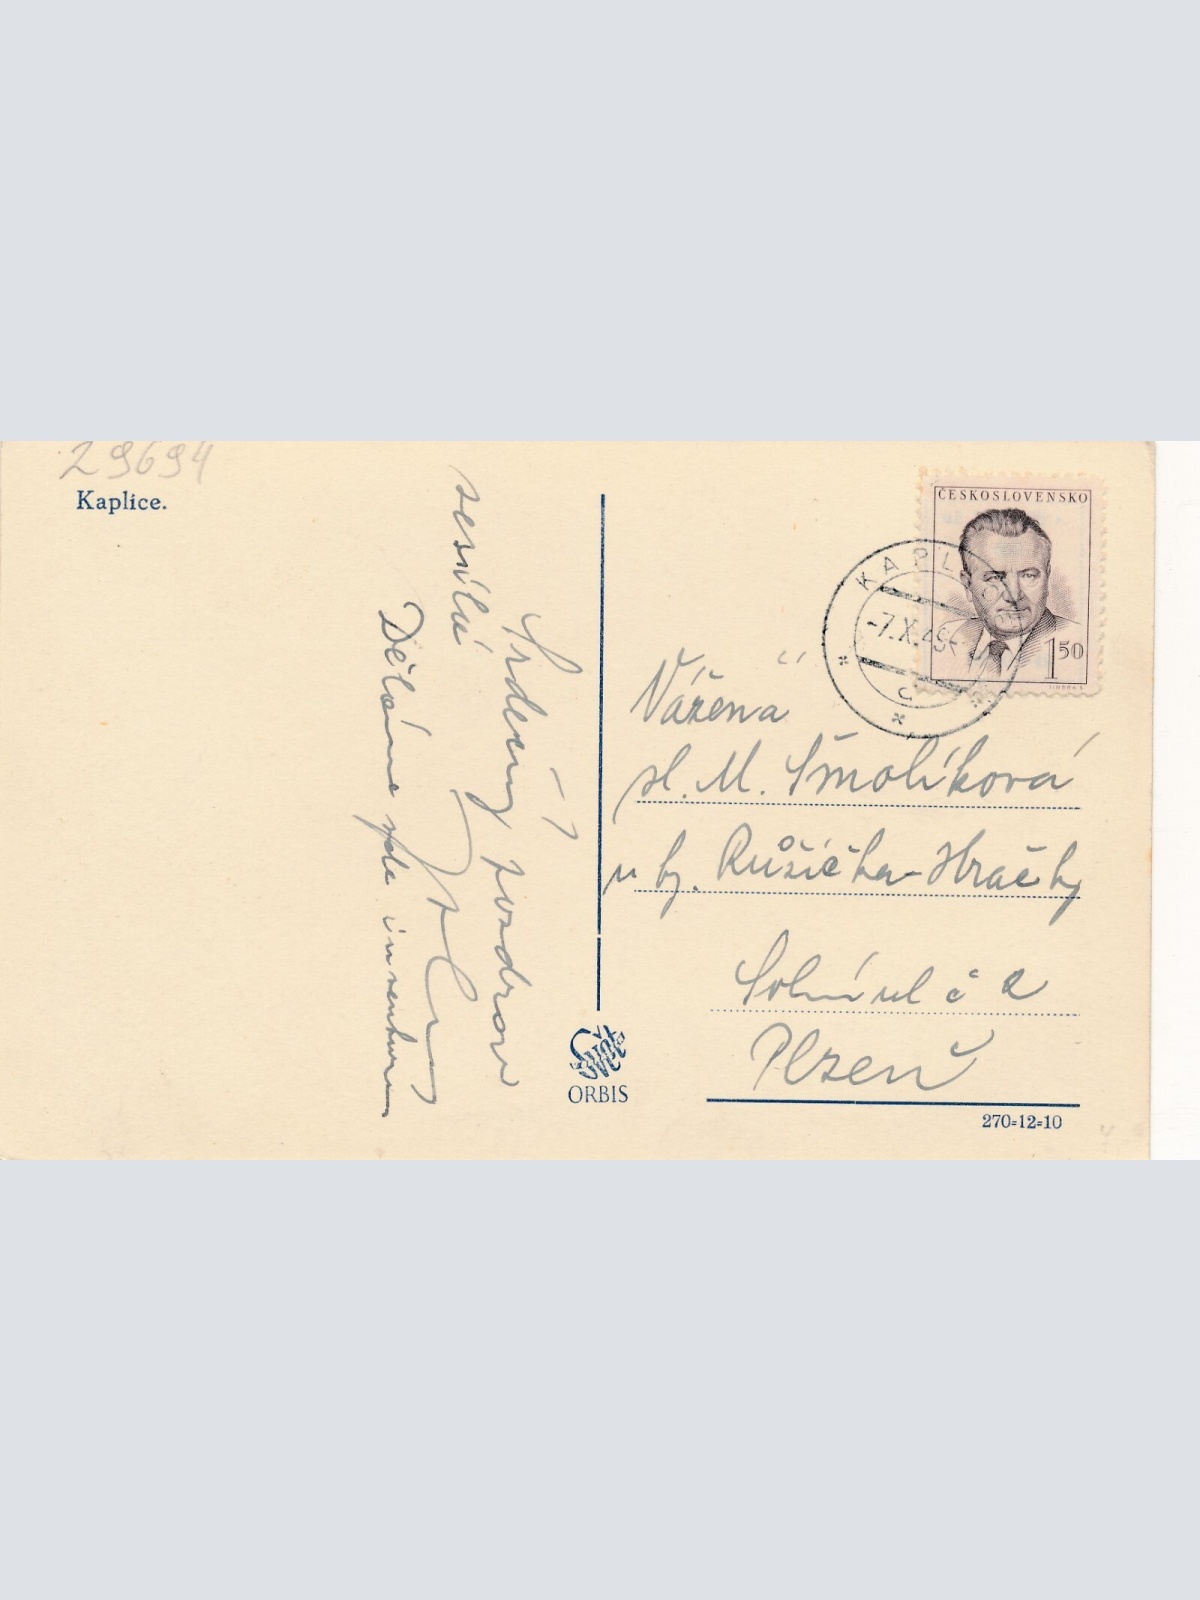 29694
Kaplice.
Srdečný pozdrav
zesílá
Děláme zde inventuru
ČESKOSLOVENSKO
1 50
KAPLICE
-7.X.49
c
Vážená
sl. M. Šmolíková
u fy. Růžička-Hračky
Solní ul č 2
Plzeň
ORBIS
270-12-10